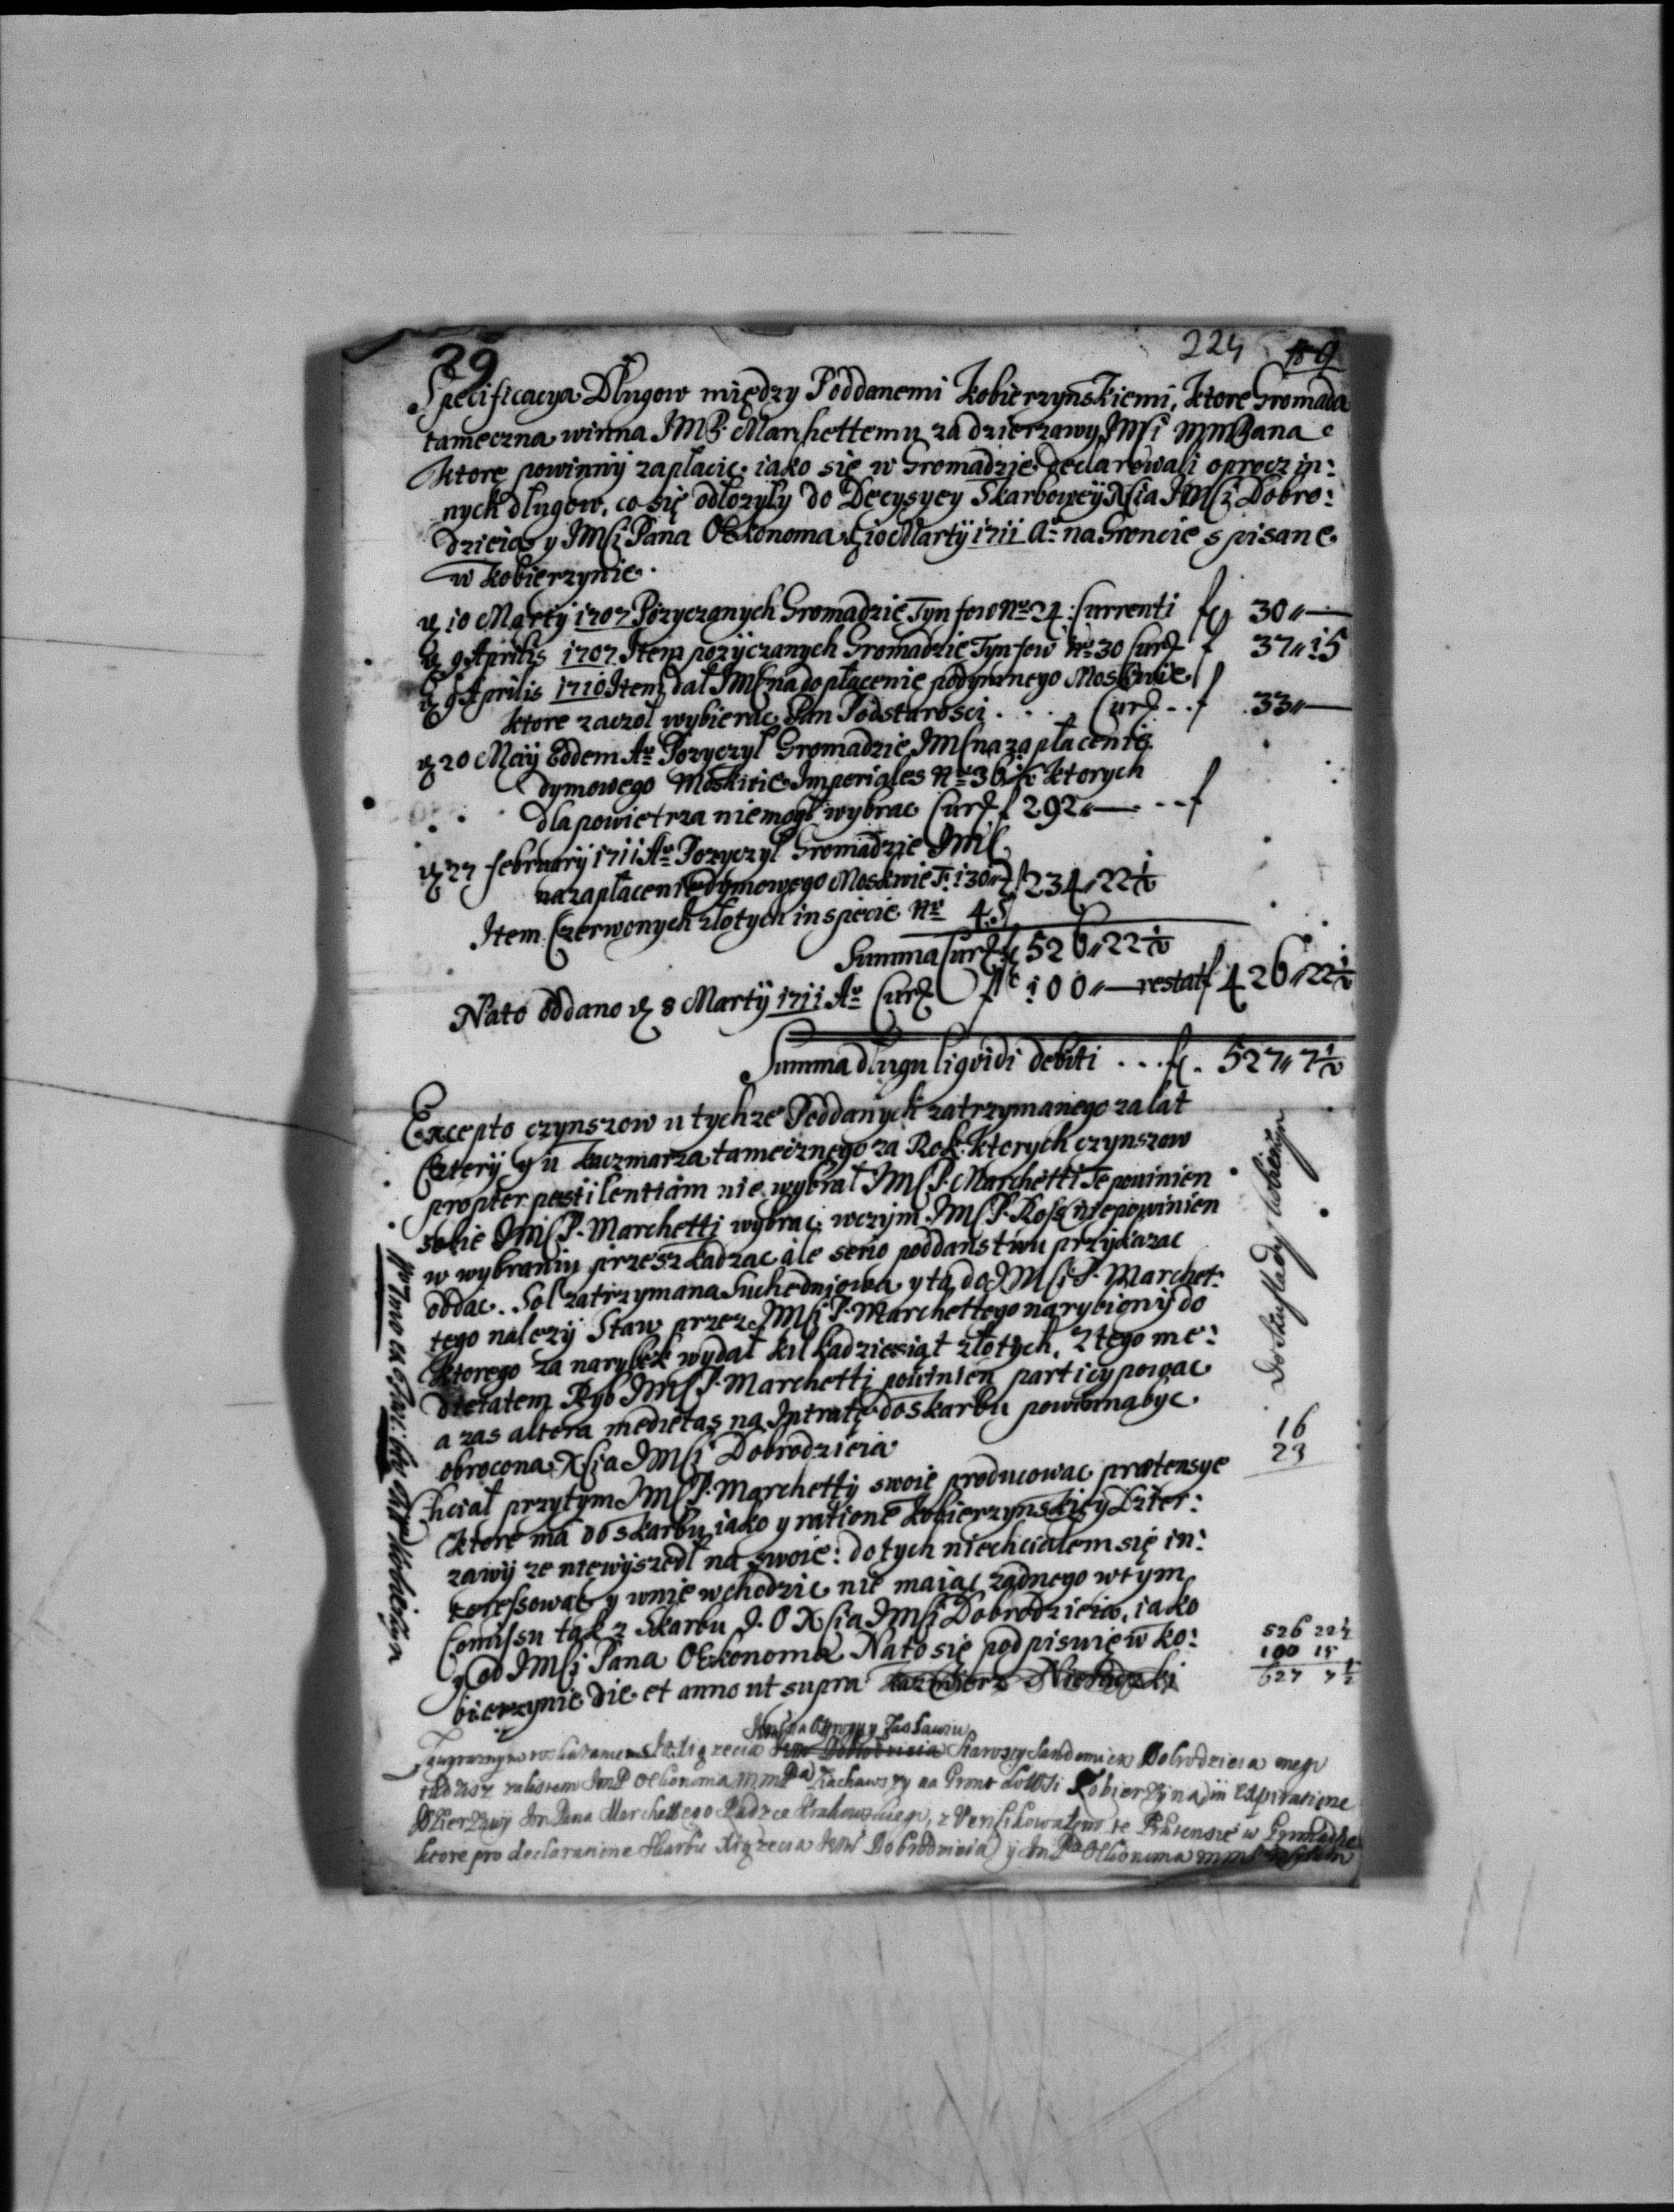 29 224
Specificacya Długow między Poddanemi Kobierzynskiemi, ktore Gromada
tameczna winna JMP. Marchettemu za dzierzawy JMSi
ktore powinny zapłacic. iako się w Gromadzie declarowali oprocz in:
nych długow, co się odłozyły do Decysyey Skarbowey XSia JMSi Dobro:
dzieia y JMSi Pana Oekonoma 10 Martÿ 1711 Aº na Groncie spisane
w Kobierzynie.
10 Martÿ 1707 Pozyczanych Gromadzie Tynfow Nº 24. Currenti f 30 „ —
9 Aprilis 1707 Item pozyczanych Gromadzie Tynfow Nº 30 Curr f 37 „ 15
9 Aprilis 1710 Item dał JMS na dopłacenie podymnego Moskwie
ktore zaczoł wybierac Pan Podstarosci . . . . Curr - - f 33 „ —
20 Maÿ Eodem Aº Pozyczył Gromadzie JMS na zapłacenie
dymowego Moskwie Imperiales Nº 36 ktorych
dla powietrza niemogł wybrac Curr f 292 „ — - - f
27 februarÿ 1711 Aº Pozyczył Gromadzie JMS
na zapłacenie dymowego Moskwie T. 130 f 234 „ 22½
Item Czerwonych złotych in specie Nº 4.
Summa Curr f 526 „ 22½
Nato oddano 8 Martÿ 1711 Aº Curr f 100 „ — restat f 426 „ 22½
Summa długu liqvidi debiti . . . f. 527 „ 7½
Excepto czynszow u tychze Poddanych zatrzymanego za lat
Cztery y u kaczmarza tamecznego za Rok. ktorych czynszow
propter pestilentiam nie wybrał JMSP. Marchetti Te powinien
sobie JMSP. Marchetti wybrac. w czym JMSP. niepowinien
w wybraniu przeszkadzac ale serio poddanstwu przykazac
oddac. Sol zatrzymana Suchedniowa y ta do JMSi P. Marchet:
tego nalezy Staw przez JMSi P. Marchettego narybiony do
ktorego za narybek wydał kilkadziesiąt złotych, z tego me:
dietatem Ryb JMSP. Marchetti powinien participowac
a zas altera medietas na Intratę do skarbu powinna byc
obrocona XSia JMSi Dobrodzieia
Chciał przytym JMSP. Marchetty swoie producowac prætensye
ktore ma do skarbu, iako y ratione Kobierzynskiey Dzier:
zawÿ ze niewyszedł na swoie: do tych niechciałem się in:
teressowac y w nie wchodzic nie maiąc zadnego w tym
Comissu tak z Skarbu J. O XSia JMSi Dobrodzieia, iako
y od JMSi Pana Oekonoma Nato się podpisuię w Ko:
bierzynie die et anno ut supra Kazimierz
16
23
526 22½
100 15
627 7½
Xiązecia Starosty Sandomirs Dobrodzieia mego
tudziesz za listem JmP Oekonoma ziachawszy na Gront do Wsi Kobierzyna in expiratione
Dzierzawy Jm Pana Marchettego Radzce Krakowskiego, zVerifikowałem te Prætensie w Gromadzie
ktore pro declaratione Skarbu Xiązecia Dobrodzieia y Oekonoma